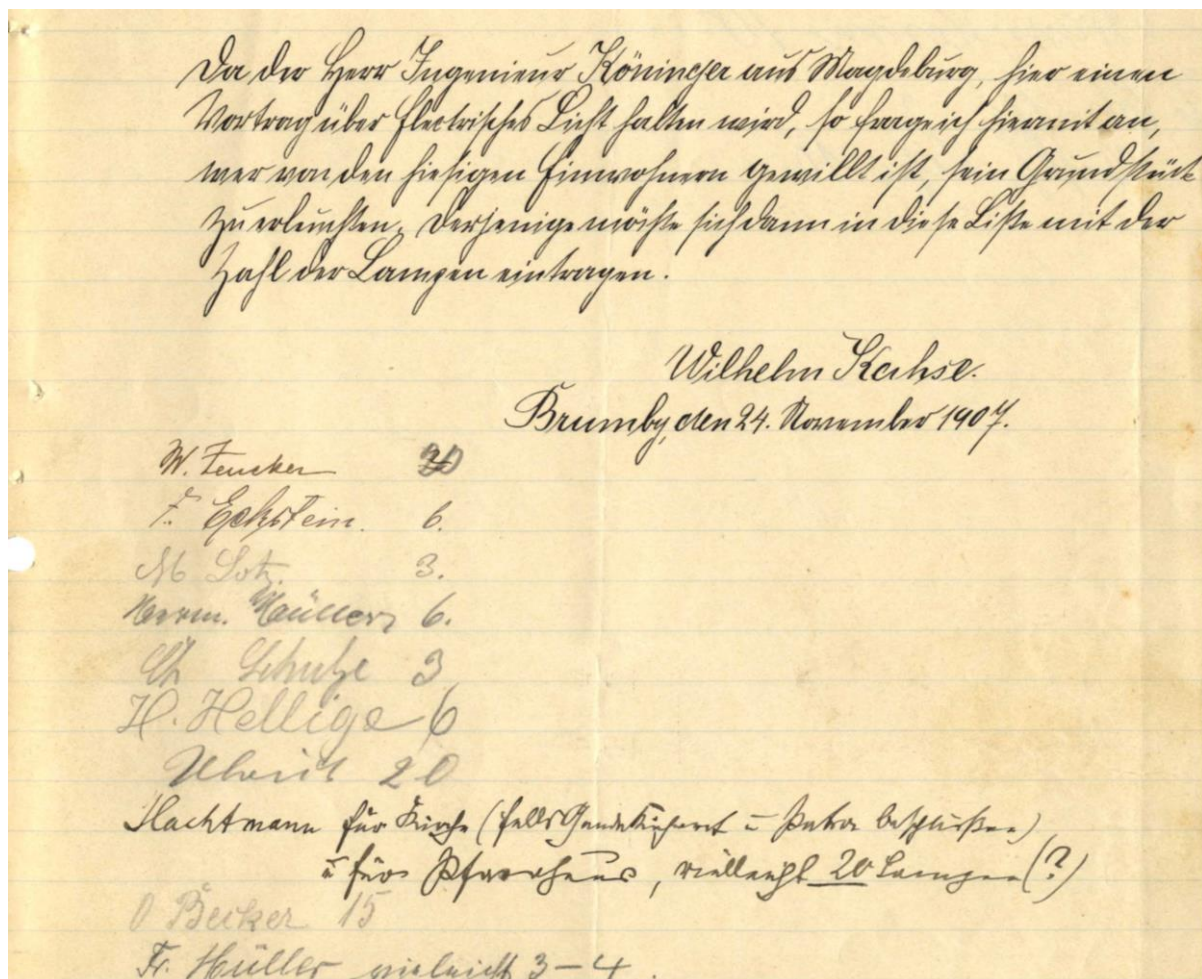 Da der Herr Ingenieur Köninger aus Magdeburg, hier einen
Vortrag über Electrisches Licht halten wird, so frage ich hiermit an,
wer von den hiesigen Einwohnern gewillt ist, sein Grundstück
zu erleuchten. Derjenige möchte sich dann in diese Liste mit der
Zahl der Lampen eintragen.
Wilhelm Kahse.
Brumby, den 24. November 1907.
W. Zeucker
F. Eckstein. 6.
M Lotz. 3.
Herm. Müller 6.
Ch Schulze 3
H. Hellige 6
20
Hachtmann für Kirche (falls u Patron beschließen)
u fürs Pfarrhaus, vielleicht 20 Lampen (?)
O Becker 15
Fr. Müller vieleicht 3-4.